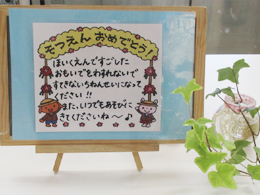 そつえん おめでとう!
ほいくえんですごした
おもいでをわすれないで
すてきないちねんせいになって
ください!!
また、いつでもあそびに
きてくださいね〜♪